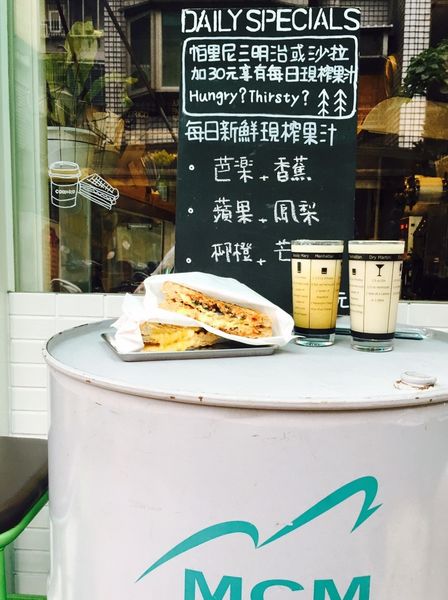 DAILY SPECIALS
帕里尼三明治或沙拉
加30元享有每日現榨果汁
Hungry? Thirsty?
每日新鮮現榨果汁
• 芭樂 + 香蕉
• 蘋果 + 鳳梨
• 柳橙 + 芒
元
Manhattan
Dry Martini
MCM